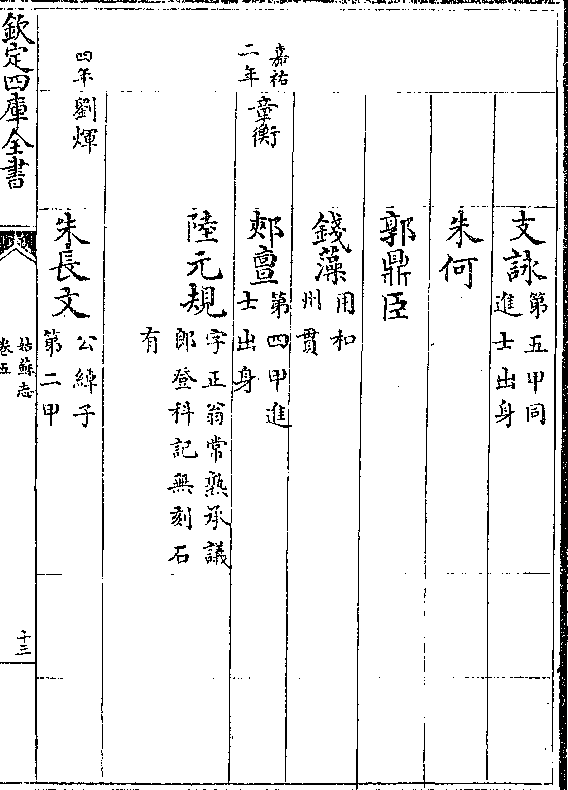 支詠第五甲同
進士出身
朱何
郭鼎臣
錢藻用和
州貫
嘉祐
二年章衡
郟亶第四甲進
士出身
陸元規字正翁常熟承議
郎登科記無刻石
有
四年劉煇
朱長文公綽子
第二甲
欽定四庫全書
姑蘇志
卷五
十三